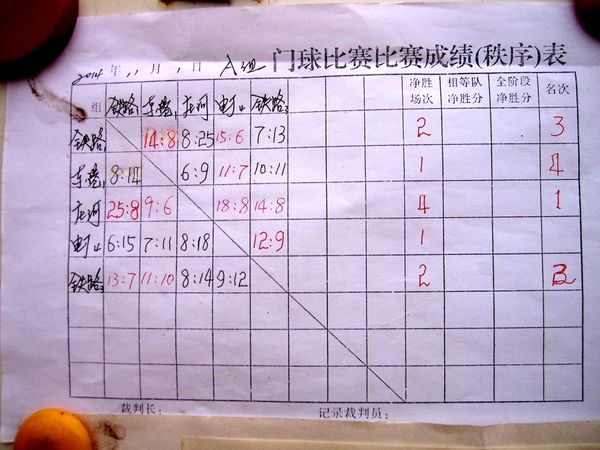 2014年 11月 1日 A组 门球比赛比赛成绩(秩序)表
组 铁路1 东港1 庄河 铁路2 净胜场次 相等队净胜分 全阶段净胜分 名次
铁路1 14:8 8:25 15:6 7:13 2 3
东港1 8:14 6:9 11:7 10:11 1 4
庄河 25:8 9:6 18:8 14:8 4 1
6:15 7:11 8:18 12:9 1
铁路2 13:7 11:10 8:14 9:12 2
裁判长: 记录裁判员: